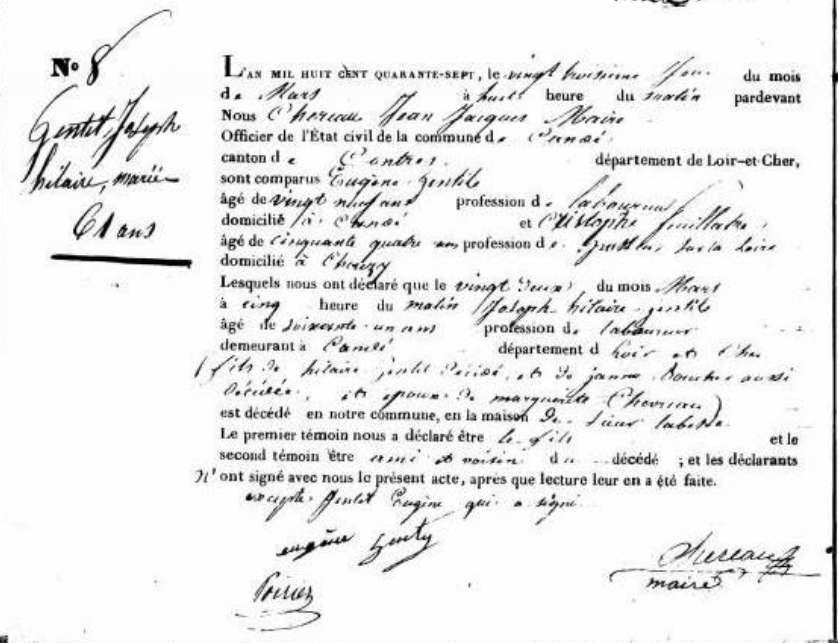 N° 8
Gentil, Joseph
hilaire, marié
61 ans
L'AN MIL HUIT CENT QUARANTE-SEPT, le vingt troisieme jour du mois
de Mars à huit heure du matin pardevant
Nous Chereau Jean Jacques Maire
Officier de l'État civil de la commune de Candé
canton de Contres département de Loir-et-Cher,
sont comparus Eugène Gentil
âgé de vingt neuf ans profession de laboureur
domicilié à Candé et
âgé de cinquante quatre ans profession de sur la Loire
domicilié à Chouzy
Lesquels nous ont déclaré que le vingt deux du mois Mars
à cinq heure du matin Joseph hilaire gentil
âgé de soixante un ans profession de laboureur
demeurant à Candé département d Loir et Cher
(fils de hilaire gentil décédé, et de janne aussi
décédée, et epoux de marguerite Chereau)
est décédé en notre commune, en la maison de Sieur labesse
Le premier témoin nous a déclaré être le fils et le
second témoin être ami et voisin du décédé ; et les déclarants
n'ont signé avec nous le présent acte, après que lecture leur en a été faite.
excepté Gentil Eugène qui a signé
eugène Genty
Poirier
Chereau
maire